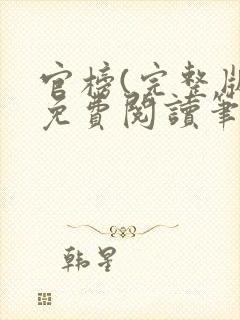 官榜(完整版
免費閱讀筆
韩星